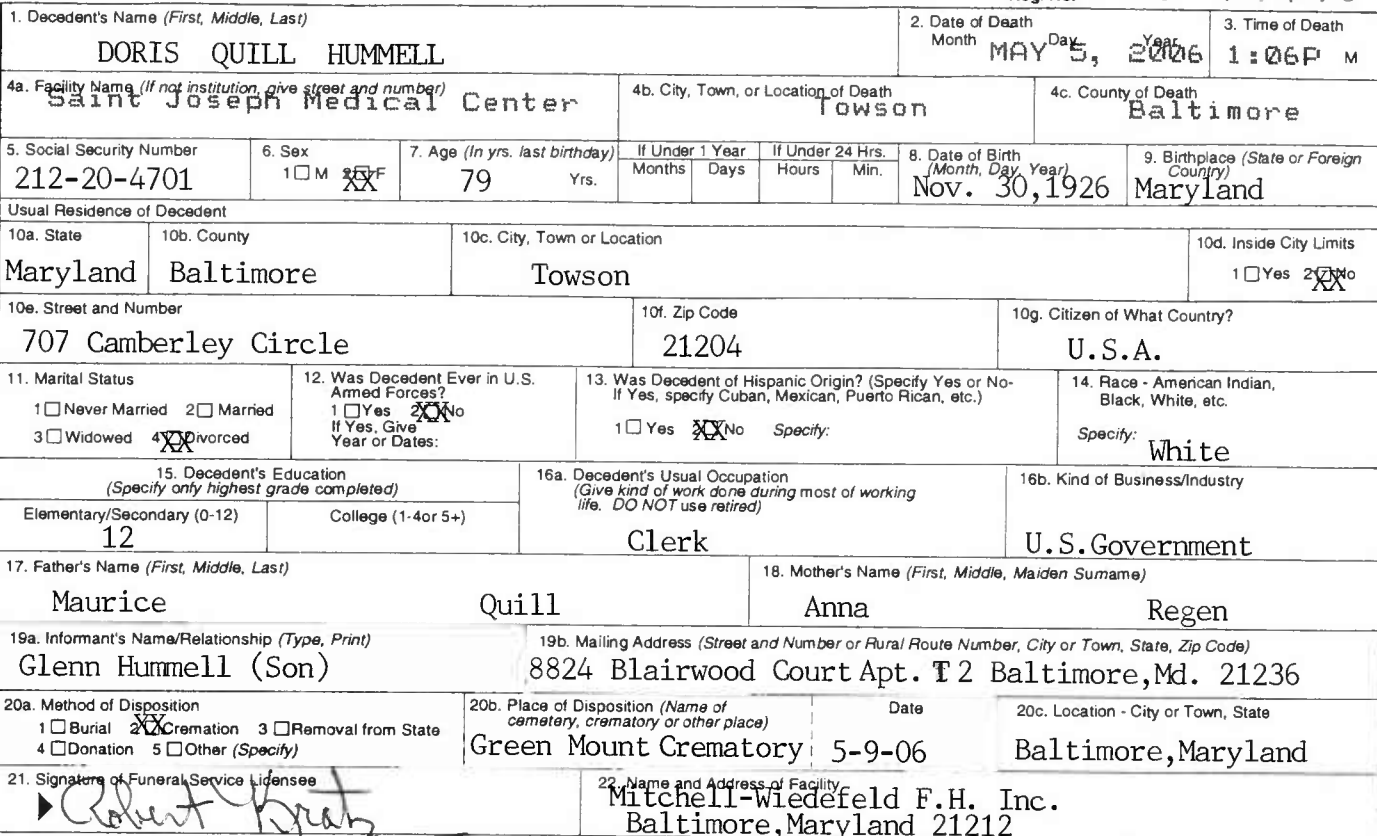 1. Decedent's Name (First, Middle, Last)
DORIS QUILL HUMMELL
2. Date of Death
Month Day Year
MAY 5, 2006
3. Time of Death
1:06P M
4a. Facility Name (If not institution, give street and number)
Saint Joseph Medical Center
4b. City, Town, or Location of Death
Towson
4c. County of Death
Baltimore
5. Social Security Number
212-20-4701
6. Sex
1☐ M 2☒F
7. Age (In yrs. last birthday)
79 Yrs.
If Under 1 Year
Months Days
If Under 24 Hrs.
Hours Min.
8. Date of Birth
(Month, Day, Year)
Nov. 30,1926
9. Birthplace (State or Foreign
Country)
Maryland
Usual Residence of Decedent
10a. State
Maryland
10b. County
Baltimore
10c. City, Town or Location
Towson
10d. Inside City Limits
1☐Yes 2☒No
10e. Street and Number
707 Camberley Circle
10f. Zip Code
21204
10g. Citizen of What Country?
U.S.A.
11. Marital Status
1☐Never Married 2☐ Married
3☐Widowed 4☒Divorced
12. Was Decedent Ever in U.S.
Armed Forces?
1☐Yes 2☒No
If Yes, Give
Year or Dates:
13. Was Decedent of Hispanic Origin? (Specify Yes or No-
If Yes, specify Cuban, Mexican, Puerto Rican, etc.)
1☐ Yes 2☒No Specify:
14. Race - American Indian,
Black, White, etc.
Specify:
White
15. Decedent's Education
(Specify only highest grade completed)
Elementary/Secondary (0-12)
12
College (1-4or 5+)
16a. Decedent's Usual Occupation
(Give kind of work done during most of working
life. DO NOT use retired)
Clerk
16b. Kind of Business/Industry
U.S.Government
17. Father's Name (First, Middle, Last)
Maurice Quill
18. Mother's Name (First, Middle, Maiden Surname)
Anna Regen
19a. Informant's Name/Relationship (Type, Print)
Glenn Hummell (Son)
19b. Mailing Address (Street and Number or Rural Route Number, City or Town, State, Zip Code)
8824 Blairwood Court Apt. T 2 Baltimore,Md. 21236
20a. Method of Disposition
1☐Burial 2☒Cremation 3☐Removal from State
4☐Donation 5☐Other (Specify)
20b. Place of Disposition (Name of
cemetery, crematory or other place)
Green Mount Crematory
Date
5-9-06
20c. Location - City or Town, State
Baltimore,Maryland
21. Signature of Funeral Service Licensee
Robert Kratz
22. Name and Address of Facility
Mitchell-Wiedefeld F.H. Inc.
Baltimore,Maryland 21212